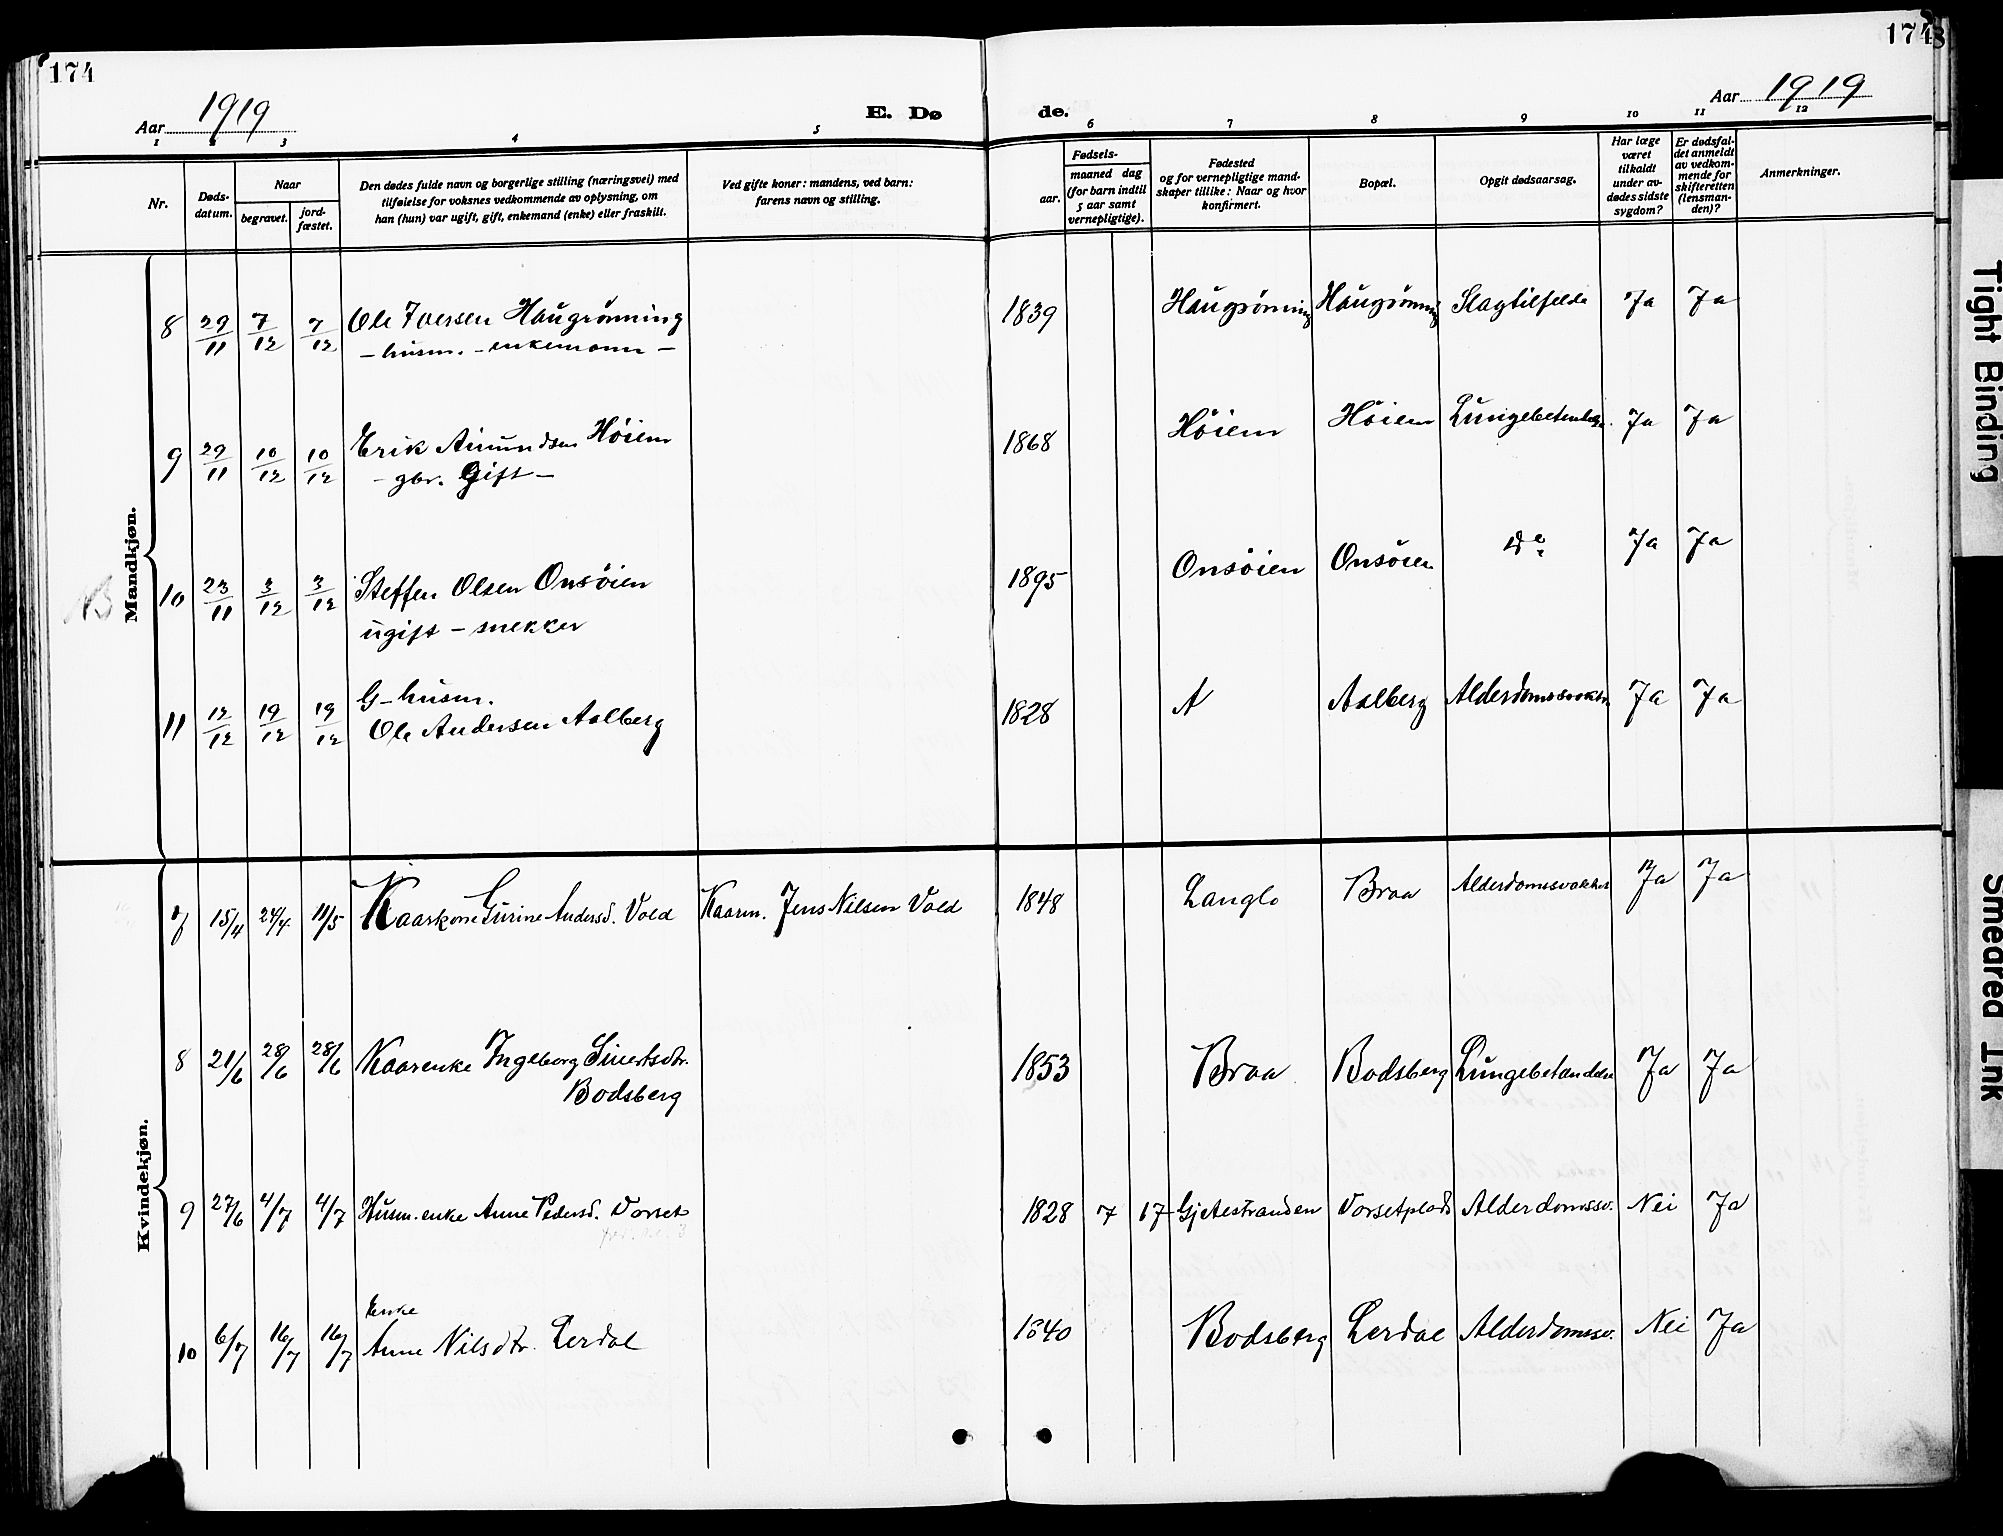 174
Aar 1919
E. Dø
de.
Aar 1919
174
1 2 3 4 5 6 7 8 9 10 11 12
Nr.
Døds-
datum.
Naar
begravet.
jord-
fæstet.
Den dødes fulde navn og borgerlige stilling (næringsvei) med
tilføielse for voksnes vedkommende av oplysning, om
han (hun) var ugift, gift, enkemand (enke) eller fraskilt.
Ved gifte koner: mandens, ved barn:
farens navn og stilling.
Fødsels-
aar.
maaned dag
(for barn indtil
5 aar samt
vernepligtige).
Fødested
og for vernepligtige mand-
skaper tillike: Naar og hvor
konfirmert.
Bopæl.
Opgit dødsaarsag.
Har læge
været
tilkaldt
under av-
dødes sidste
sygdom?
Er dødsfal-
det anmeldt
av vedkom-
mende for
skifteretten
(lensman-
den)?
Anmerkninger.
Mandkjøn.
8 29/11 7/12 7/12 Ole Iversen Haugrönning 1839 Haugrönning Haugrönning Slagtilfelde Ja Ja
– husm. – enkemann –
9 29/11 10/12 10/12 Erik Amundsen Höiem 1868 Höiem Höiem Lungebetendelse. Ja Ja
– gbr. Gift –
10 23/11 3/12 3/12 Steffen Olsen Onsöien 1895 Onsöien Onsöien Do Ja Ja
ugift – snekker
G – husm.
11 12/12 19/12 19/12 Ole Andersen Aalberg 1828 A Aalberg Alderdomssvakh. Ja Ja
Kvindekjøn.
7 15/4 24/4. 11/5 Kaarkone Gurine Andersd. Vold Kaarm. Jens Nilsen Vold 1848 Langlo Braa Alderdomssvakhet Ja Ja
8 21/6 28/6 28/6 Kaarenke Ingeborg Sivertsdtr. 1853 Braa Bodsberg Lungebetændelse Ja Ja
Bodsberg
9 27/6 4/7 4/7 Husm. enke Anne Pedersd. Vorset 1828 7 17 Gjetestranden Vorsetplads Alderdomssv. Nei Ja
Enke
10 6/7 16/7 16/7 Anne Nilsdtr. Lerdal 1840 Bodsberg Lerdal Alderdomssv. Nei Ja
Tight Binding
Smeared Ink